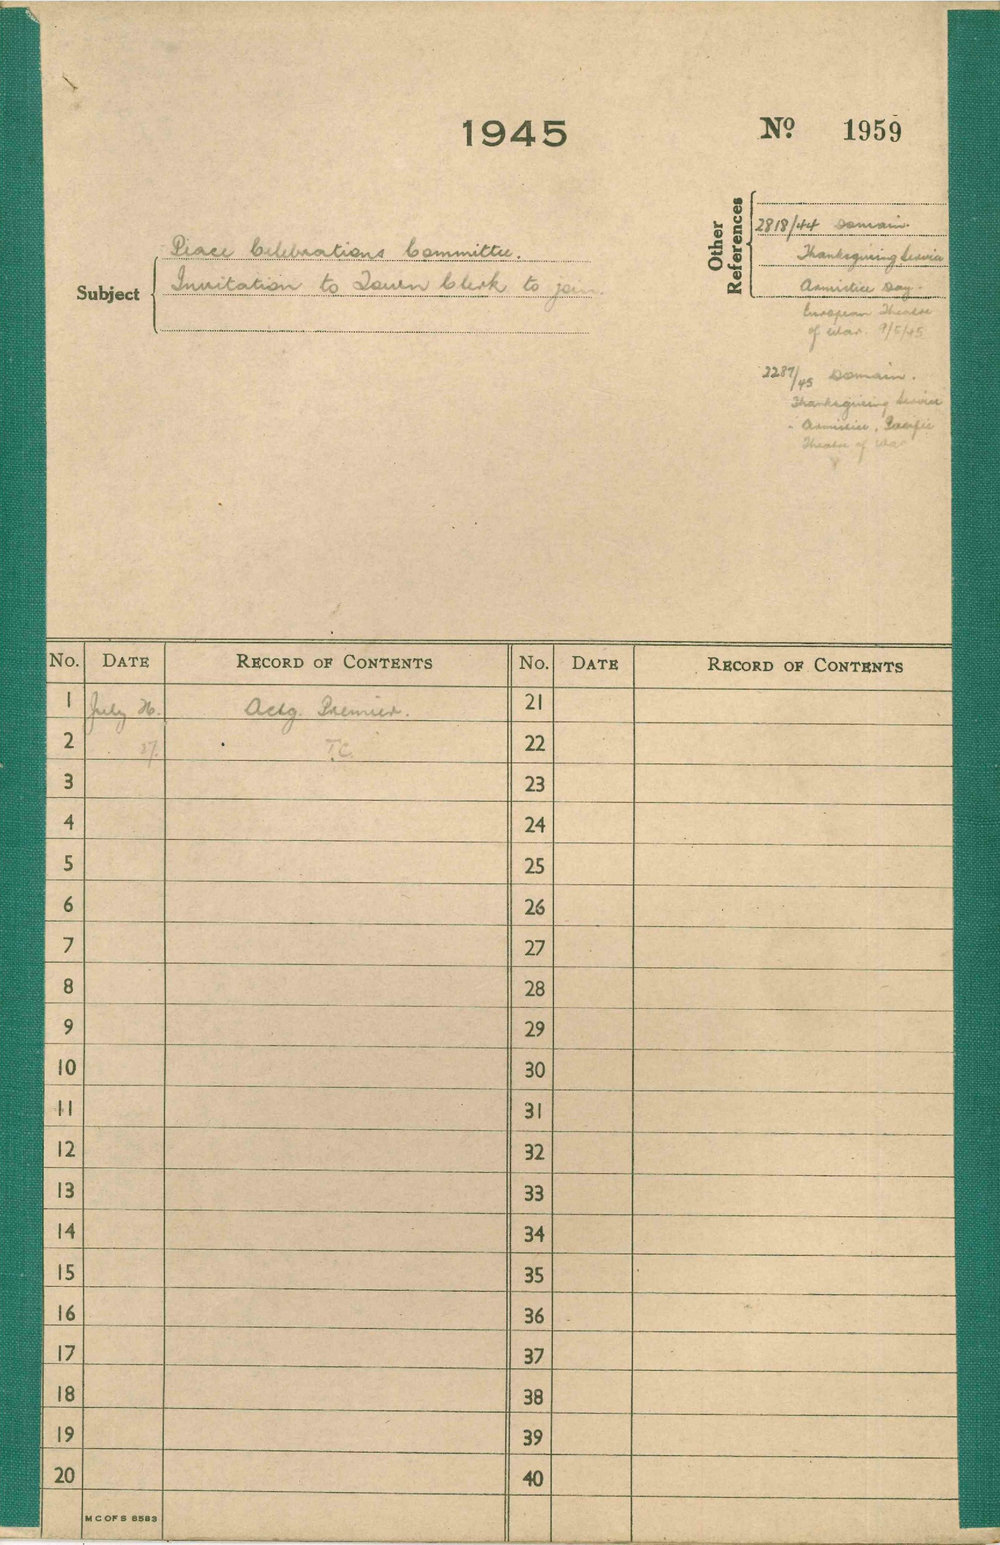 1945
Nº 1959
Other
References
2818/44 Domain.
Thanksgiving Service
Armistice Day.
European Theatre
of War. 9/5/45
2287/45 Domain.
Thanksgiving Service
- Armistice, Pacific
Theatre of War
Subject
Peace Celebrations Committee.
Invitation to Town Clerk to join.
No. DATE RECORD OF CONTENTS No. DATE RECORD OF CONTENTS
1 July 26. Actg. Premier. 21
2 27. T.C. 22
3 23
4 24
5 25
6 26
7 27
8 28
9 29
10 30
11 31
12 32
13 33
14 34
15 35
16 36
17 37
18 38
19 39
20 40
M C OF S 8583